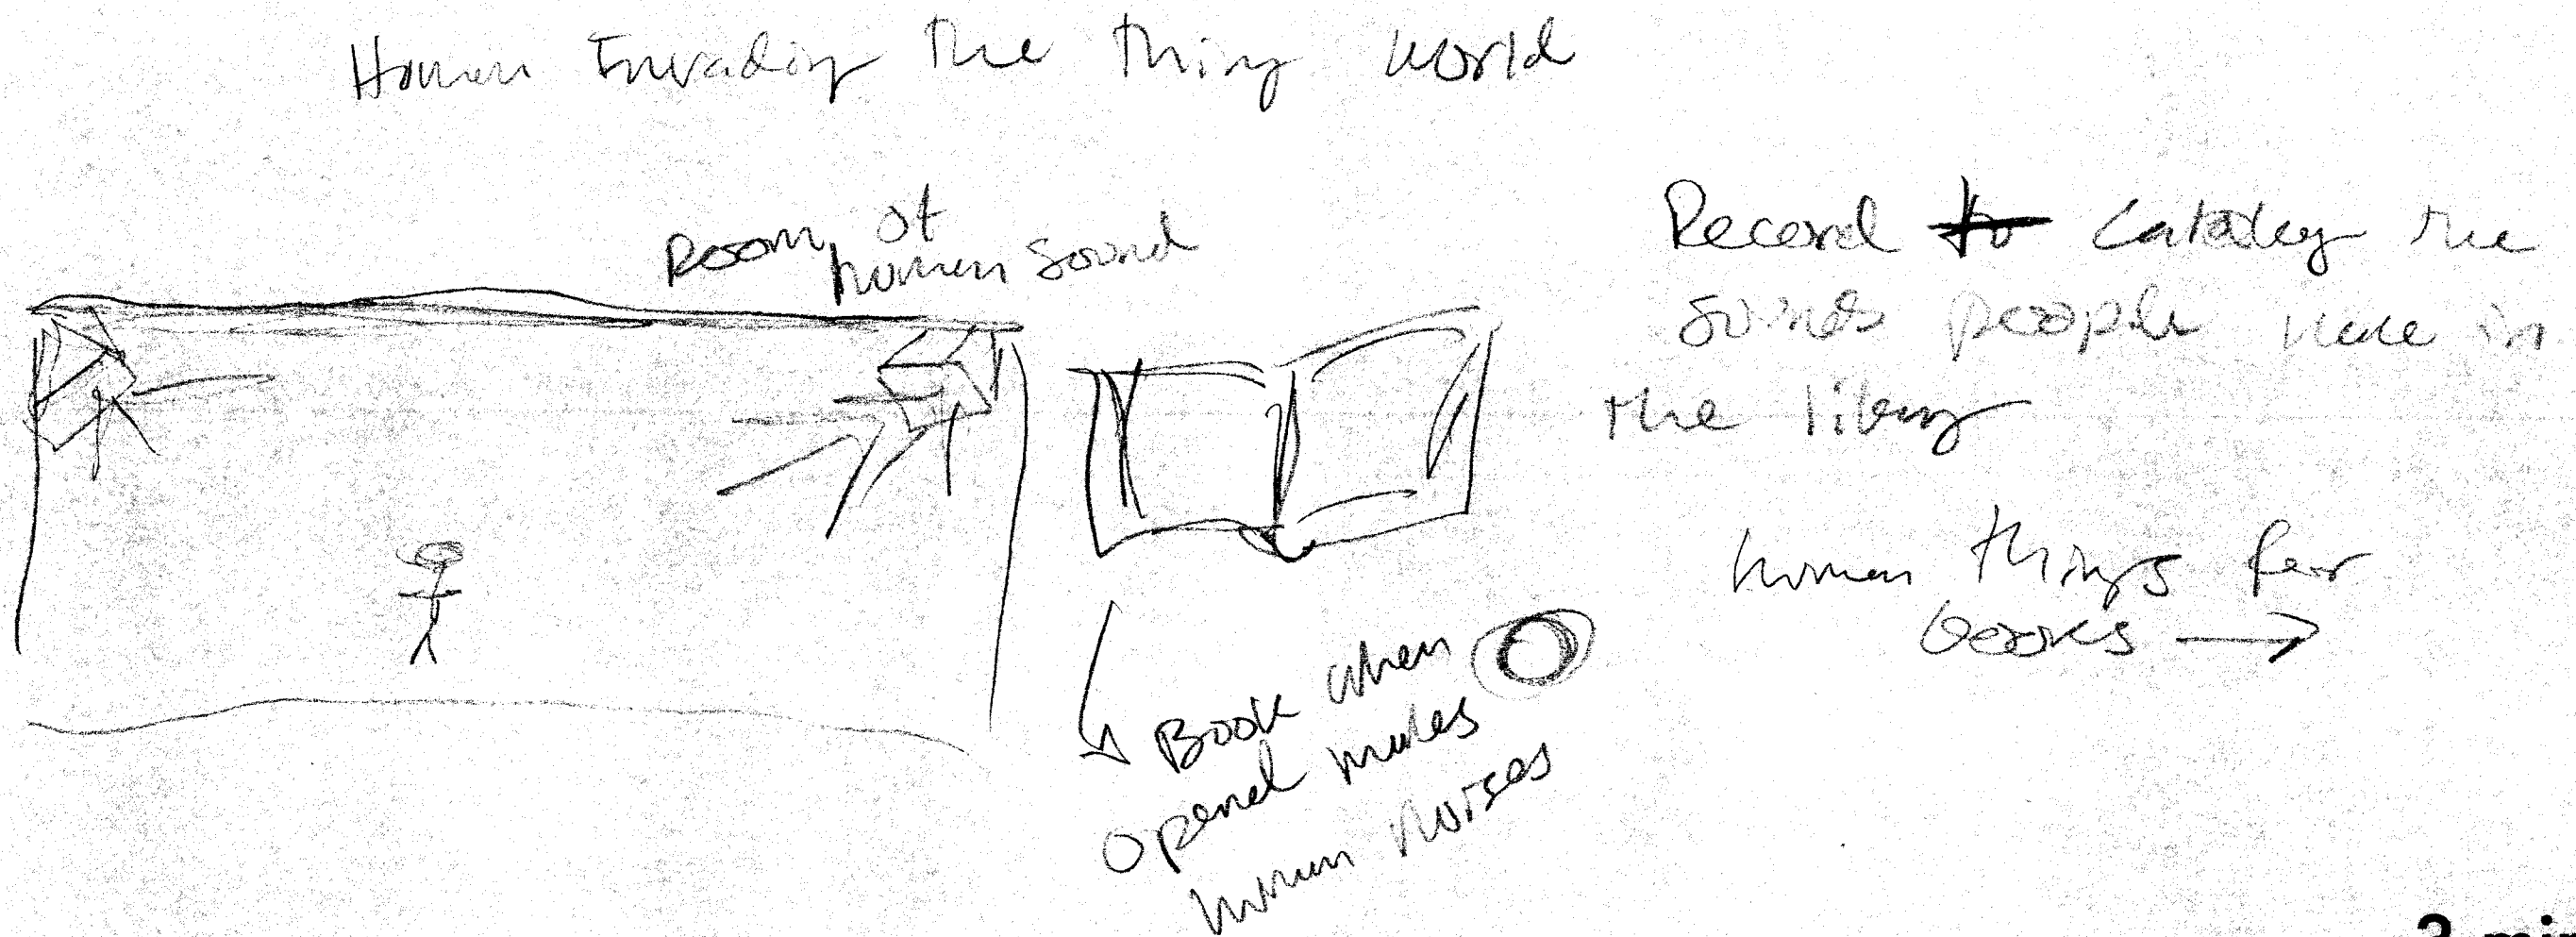 Human Invading the thing world
Room of
human sound
Record to Catalog the
sounds people make in
the library
human things for
books →
Book when
opened makes
human noises
3 min